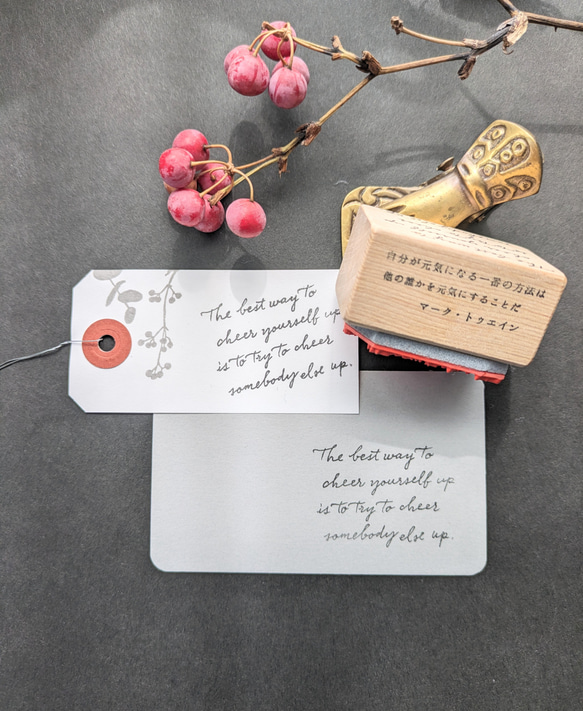 The best way to
cheer yourself up
is to try to cheer
somebody else up.
自分が元気になる一番の方法は
他の誰かを元気にすることだ
マーク・トゥエイン
The best way to
cheer yourself up
is to try to cheer
somebody else up.